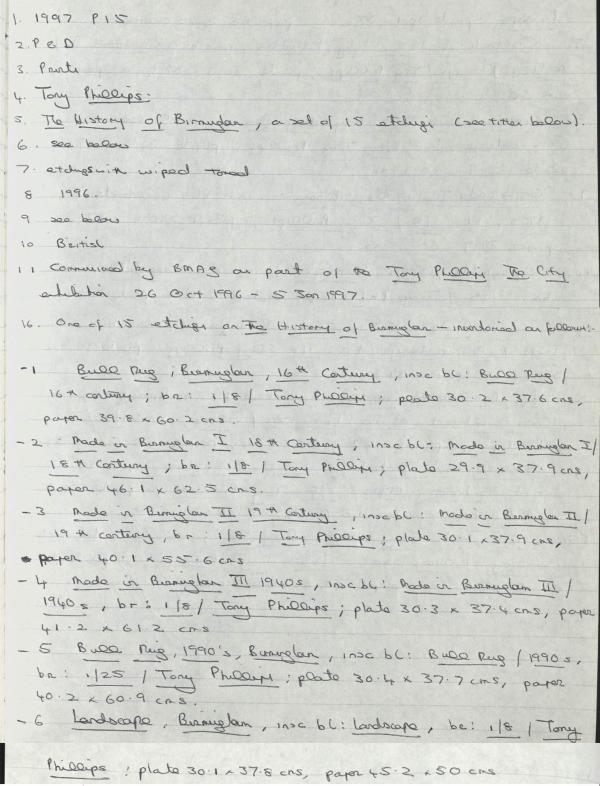 1. 1997 P15
2. P & D
3. Prints
4. Tony Phillips.
5. The History of Birmingham, a set of 15 etchings (see titles below).
6. see below
7. etchings with wiped toned
8 1996.
9 see below
10 British
11 Commissioned by BMAG as part of the Tony Phillips The City
exhibition 26 Oct 1996 - 5 Jan 1997.
16. One of 15 etchings on The History of Birmingham - inventoried as follows:-
-1 Bull Ring, Birmingham, 16th Century, insc bl: Bull Ring /
16th century; br: 1/8 / Tony Phillips; plate 30.2 x 37.6 cms,
paper 39.8 x 60.2 cms.
-2 Made in Birmingham I 18th Century, insc bl: Made in Birmingham I /
18th Century; br: 1/8 / Tony Phillips; plate 29.9 x 37.9 cms,
paper 46.1 x 62.5 cms.
-3 Made in Birmingham II 19th Century, insc bl: Made in Birmingham II /
19th century, br: 1/8 / Tony Phillips; plate 30.1 x 37.9 cms,
paper 40.1 x 55.6 cms
-4 Made in Birmingham III 1940s, insc bl: Made in Birmingham III /
1940s, br: 1/8 / Tony Phillips; plate 30.3 x 37.4 cms, paper
41.2 x 61.2 cms
-5 Bull Ring, 1990's, Birmingham, insc bl: Bull Ring / 1990s,
br: 1/25 / Tony Phillips; plate 30.4 x 37.7 cms, paper
40.2 x 60.9 cms.
-6 Landscape, Birmingham, insc bl: Landscape, br: 1/8 / Tony
Phillips; plate 30.1 x 37.8 cms, paper 45.2 x 50 cms